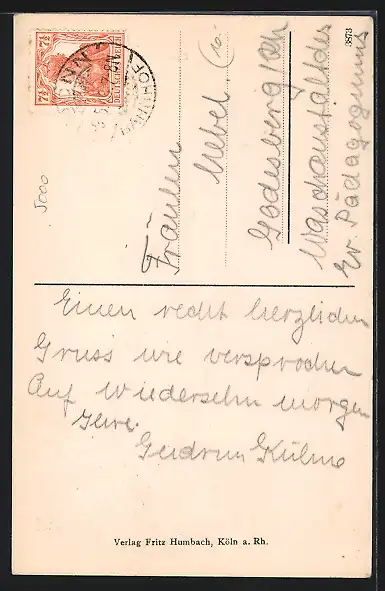 7½ 7½
DEUTSCHES REICH
BONN
BAHNHOF
3873
5000
Fräulein
Nebel.
Godesberg/Rh
Waschanstalt des
Ev Pädagogiums
Einen recht herzlichen
Gruss wie versprochen
Auf Wiedersehn morgen
Ihre
Gudrun Kühne
Verlag Fritz Humbach, Köln a. Rh.